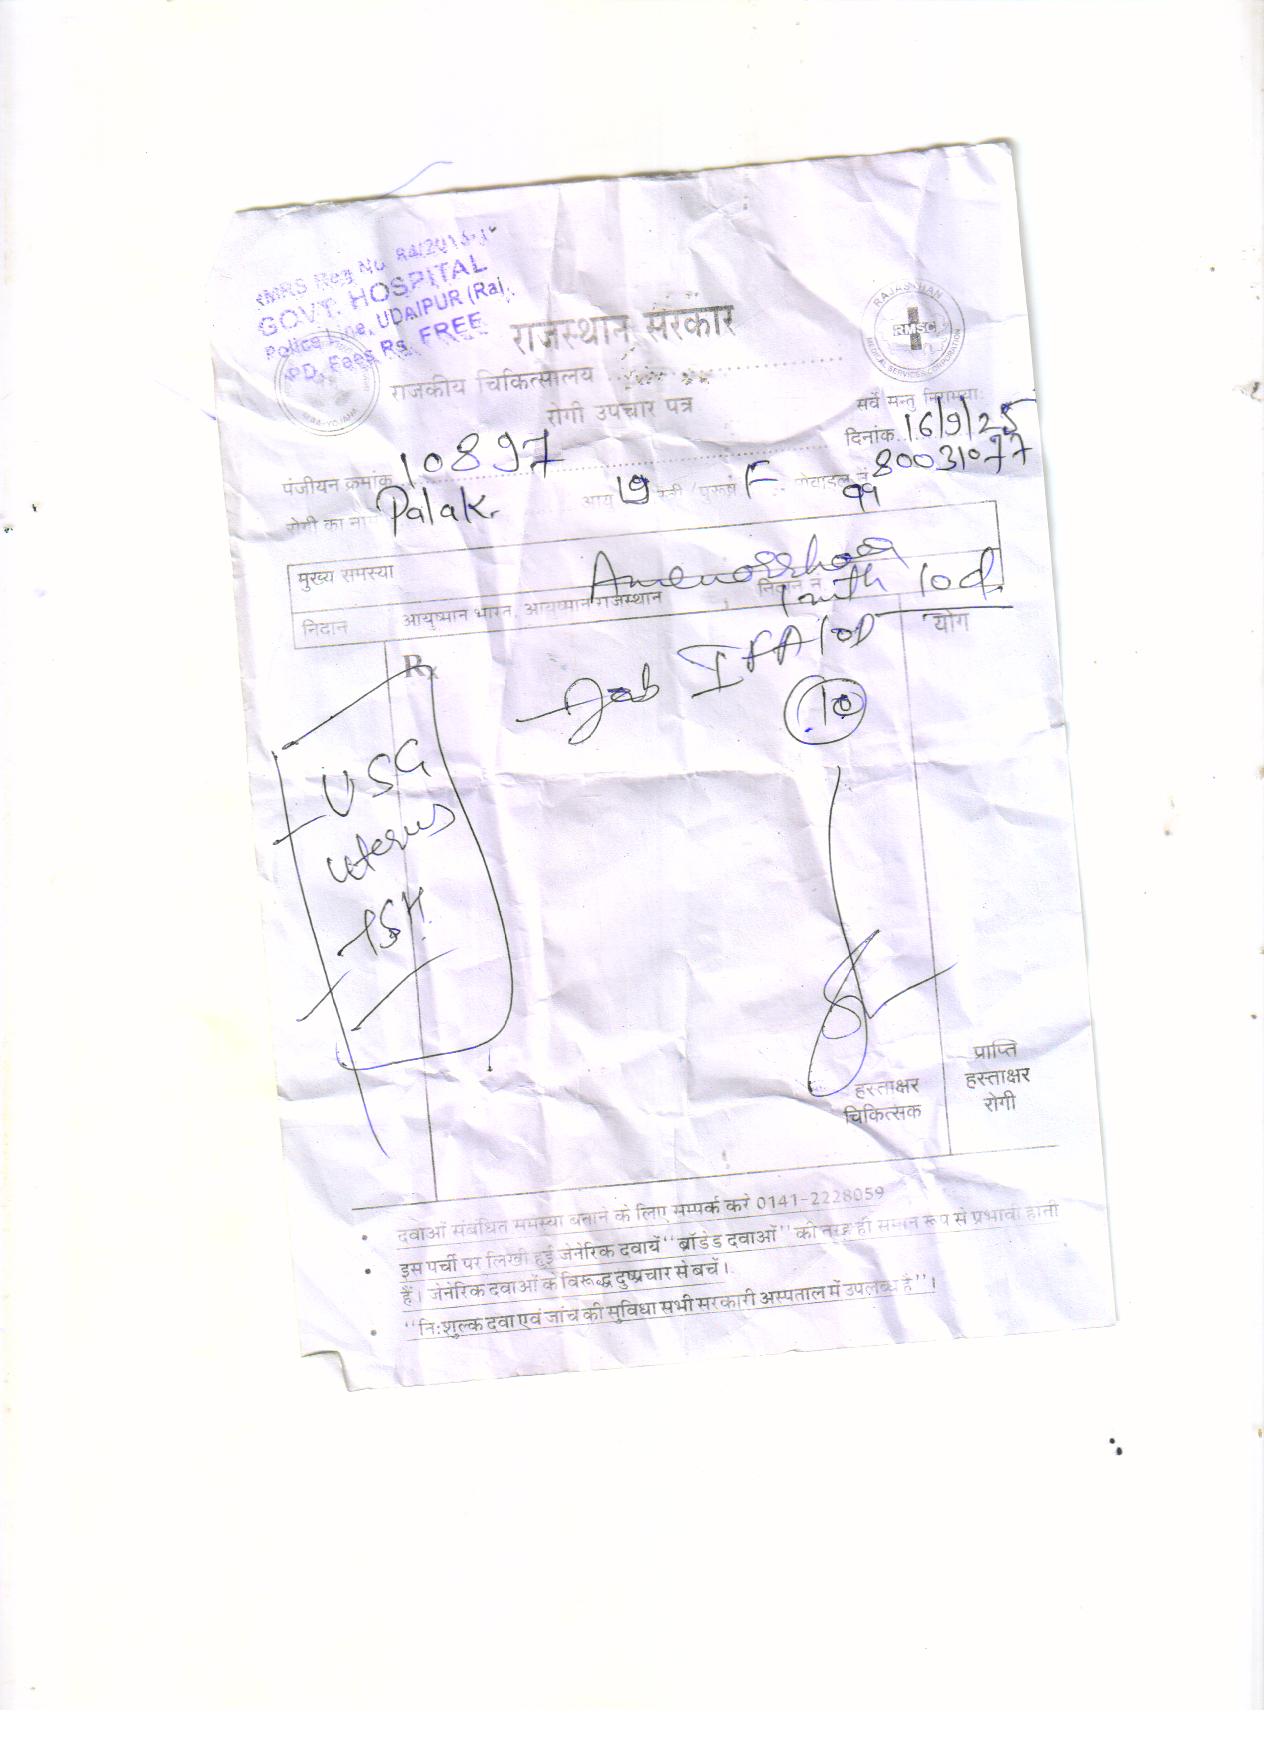 RMRS Reg No
GOVT. HOSPITAL
Police Line, UDAIPUR (Raj.
OPD. Fees Rs. FREE
राजस्थान सरकार
RAJASTHAN
RMSC
MEDICAL SERVICES CORPORATION
राजकीय चिकित्सालय
रोगी उपचार पत्र
सर्वे सन्तु निरामयाः
पंजीयन क्रमांक 10897
दिनांक 16/9/25
रोगी का नाम Palak आयु 19 स्त्री/पुरूष F मोबाइल नं. 80031077
99
मुख्य समस्या Amenorrhoea
निदान आयुष्मान भारत, आयुष्मान राजस्थान निदान नं. 10d
Rx
योग
Tab IFA 1OD
10
USG
uterus
TSH
हस्ताक्षर
चिकित्सक
प्राप्ति
हस्ताक्षर
रोगी
दवाओं संबंधित समस्या बताने के लिए सम्पर्क करें 0141-2228059
इस पर्ची पर लिखी हुई जेनेरिक दवायें "ब्रॉडेड दवाओं" की तरह ही समान रूप से प्रभावी होती
हैं। जेनेरिक दवाओं के विरूद्ध दुष्प्रचार से बचें।
"निःशुल्क दवा एवं जांच की सुविधा सभी सरकारी अस्पताल में उपलब्ध है"।